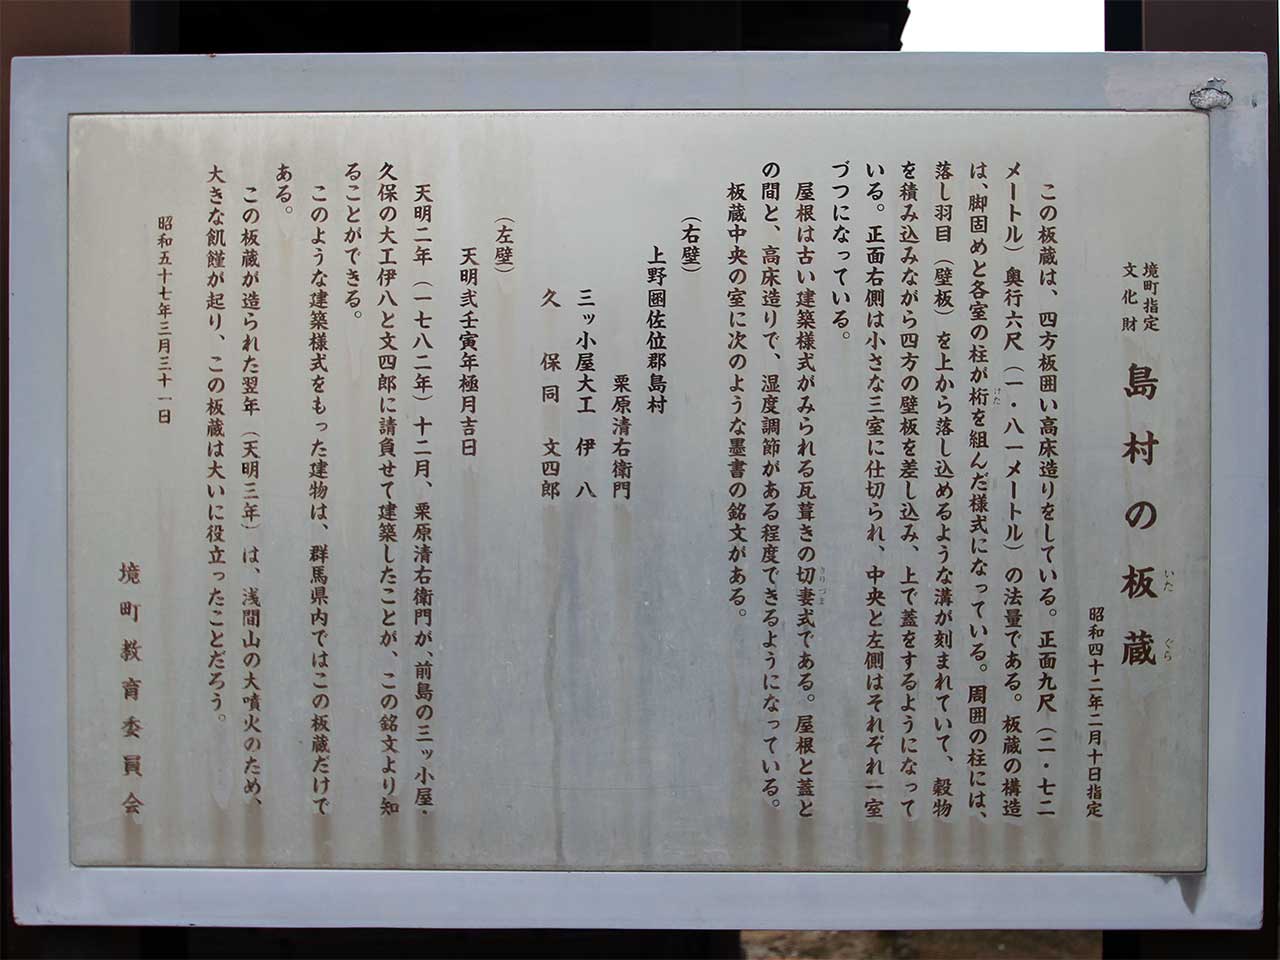 境町指定
文化財
島村の板蔵
いた
ぐら
昭和四十二年二月十日指定
この板蔵は、四方板囲い高床造りをしている。正面九尺（二・七二
メートル）奥行六尺（一・八一メートル）の法量である。板蔵の構造
は、脚固めと各室の柱が桁を組んだ様式になっている。周囲の柱には、
けた
落し羽目（壁板）を上から落し込めるような溝が刻まれていて、穀物
を積み込みながら四方の壁板を差し込み、上で蓋をするようになって
いる。正面右側は小さな三室に仕切られ、中央と左側はそれぞれ一室
づつになっている。
屋根は古い建築様式がみられる瓦葺きの切妻式である。屋根と蓋と
きりづま
の間と、高床造りで、湿度調節がある程度できるようになっている。
板蔵中央の室に次のような墨書の銘文がある。
（右壁）
上野圀佐位郡島村
栗原清右衛門
三ッ小屋大工　伊　八
久　保　同　文四郎
（左壁）
天明弐壬寅年極月吉日
天明二年（一七八二年）十二月、栗原清右衛門が、前島の三ッ小屋・
久保の大工伊八と文四郎に請負せて建築したことが、この銘文より知
ることができる。
このような建築様式をもった建物は、群馬県内ではこの板蔵だけで
ある。
この板蔵が造られた翌年（天明三年）は、浅間山の大噴火のため、
大きな飢饉が起り、この板蔵は大いに役立ったことだろう。
昭和五十七年三月三十一日
境町教育委員会